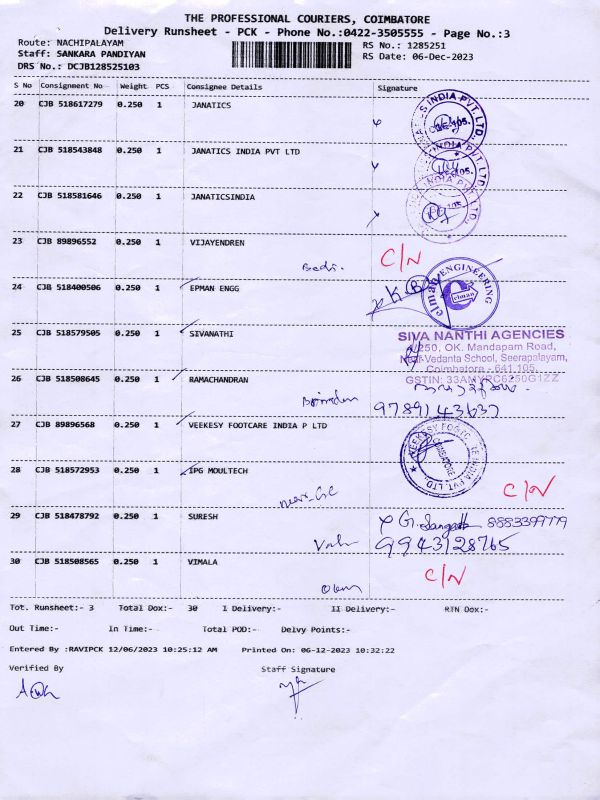 THE PROFESSIONAL COURIERS, COIMBATORE
Delivery Runsheet - PCK - Phone No.:0422-3505555 - Page No.:3
Route: NACHIPALAYAM RS No.: 1285251
Staff: SANKARA PANDIYAN RS Date: 06-Dec-2023
DRS No.: DCJB128525103
S No Consignment No Weight PCS Consignee Details Signature
20 CJB 518617279 0.250 1 JANATICS
21 CJB 518543848 0.250 1 JANATICS INDIA PVT LTD
22 CJB 518581646 0.250 1 JANATICSINDIA
23 CJB 89896552 0.250 1 VIJAYENDREN C/N
24 CJB 518400506 0.250 1 EPMAN ENGG
elman ENGINEERING
elman
25 CJB 518579505 0.250 1 SIVANATHI
SIVA NANTHI AGENCIES
4/250, OK. Mandapam Road,
Near-Vedanta School, Seerapalayam,
Coimbatore - 641 105.
26 CJB 518508645 0.250 1 RAMACHANDRAN
27 CJB 89896568 0.250 1 VEEKESY FOOTCARE INDIA P LTD
28 CJB 518572953 0.250 1 IPG MOULTECH C/N
29 CJB 518478792 0.250 1 SURESH 8883399779
9943128765
30 CJB 518508565 0.250 1 VIMALA C/N
Tot. Runsheet:- 3 Total Dox:- 30 I Delivery:- II Delivery:- RTN Dox:-
Out Time:- In Time:- Total POD:- Delvy Points:-
Entered By :RAVIPCK 12/06/2023 10:25:12 AM Printed On: 06-12-2023 10:32:22
Verified By Staff Signature